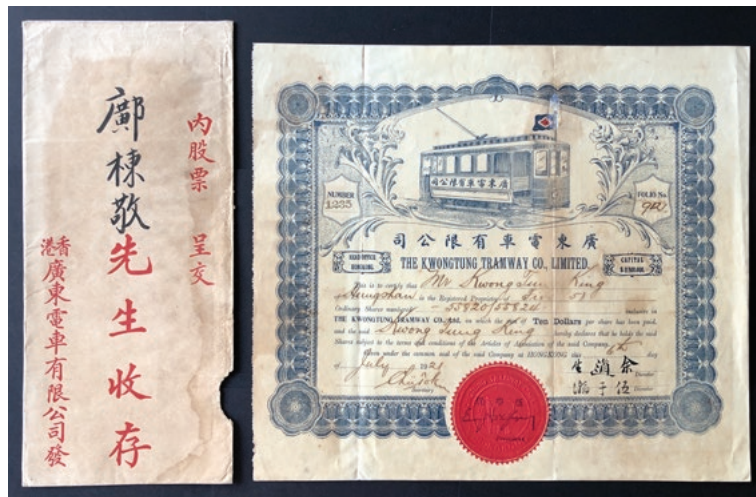 內股票 呈交
鄺棟敬先生收存
香港廣東電車有限公司發
NUMBER
1235
FOLIO No.
廣東電車有限公司
司公限有車電東廣
HEAD OFFICE
HONGKONG
CAPITAL
THE KWONGTUNG TRAMWAY CO., LIMITED
This is to certify that Mr. Kwong Tung King
of Heungshan is the Registered Proprietor of
Ordinary Shares numbered 55820/55824 inclusive in
THE KWONGTUNG TRAMWAY CO., Ltd. on which the sum of Ten Dollars per share has been paid,
and the said Kwong Tung King hereby declares that he holds the said
Shares subject to the terms and conditions of the Articles of Association of the said Company.
Given under the common seal of the said Company at HONGKONG this 6th day
of July 1921
Secretary
Director
伍于瀚 Director